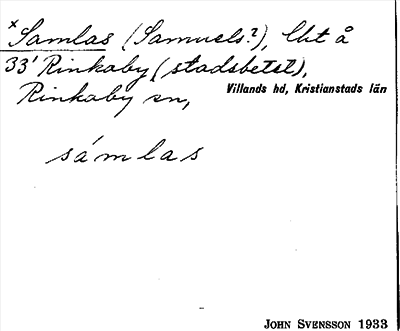 × Samlas (Samuels?), lht å
33' Rinkaby (stadsbetet),
Rinkaby sn,
Villands hd, Kristianstads län
sámlas
JOHN SVENSSON 1933